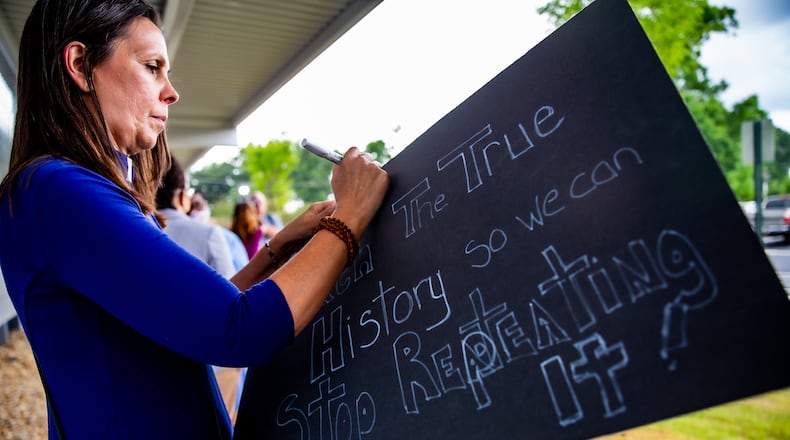 The True
History so we can
Stop Repeatting
It!